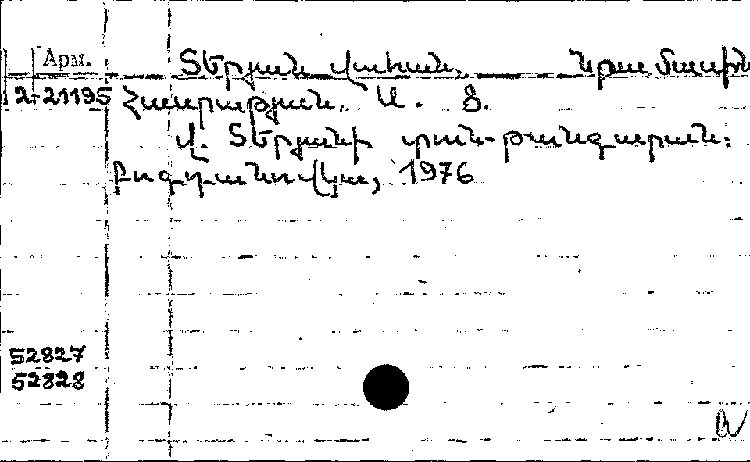 Арм. Տերյան Վահան. նրա մասին
2-21195 Հարության. Ա. Ց.
Վ. Տերյանի տուն-թանգարան։
Բոգդանովկա, 1976
52827
52828